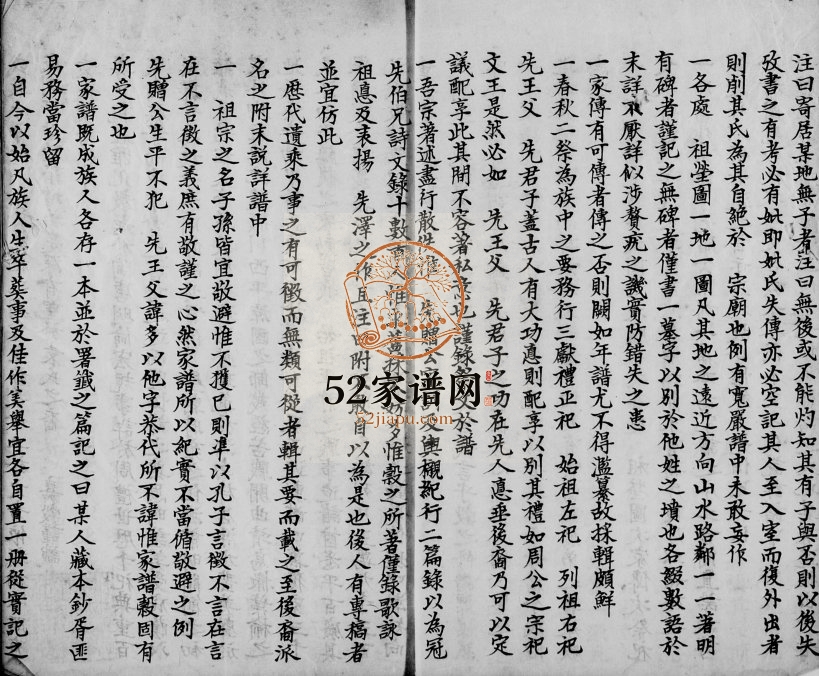 注曰寄居某地無子者注曰無後或不能灼知其有子與否則以後失
攷書之有考必有妣即妣氏失傳亦必空記其人至入室而復外出者
則削其氏為其自絕於　宗廟也例有寬嚴譜中未敢妄作
一各處　祖塋圖一地一圖凡其地之遠近方向山水路鄰一一著明
有碑者謹記之無碑者僅書一墓字以別於他姓之墳也各綴數語於
末詳不厭詳似涉贅疣之譏實防錯失之患
一家傳有可傳者傳之否則闕如年譜尤不得濫纂故採輯頗鮮
一春秋二祭為族中之要務行三獻禮正祀　始祖左祀　列祖右祀
先王父　先君子蓋古人有大功悳則配享以別其禮如周公之宗祀
文王是然必如　先王父　先君子之功在先人悳垂後裔乃可以定
議配享此其間不容著私意也謹錄於譜
一吾宗著述盡行散　先贈公　輿櫬紀行二篇錄以為冠
先伯兄詩文錄十數百　惟　惟榖之所著僅錄歌詠
祖悳及表揚　先澤之作且注　附　以為是也後人有專槁者
並宜仿此
一歷代遺乘乃事之有可徵而無類可從者輯其要而載之至後裔派
名之附末說詳譜中
一　祖宗之名子孫皆宜敬避惟不獲已則準以孔子言徵不言在言
在不言徵之義庶有敬謹之心然家譜所以紀實不當循敬避之例
先贈公生平不犯　先王父諱多以他字恭代所不諱惟家譜榖固有
所受之也
一家譜既成族人各存一本並於署籤之篇記之曰某人藏本鈔胥匪
易務當珍留
一自今以始凡族人生卒葬事及佳作美舉宜各自置一冊從實記之
52家谱网
52jiapu.com